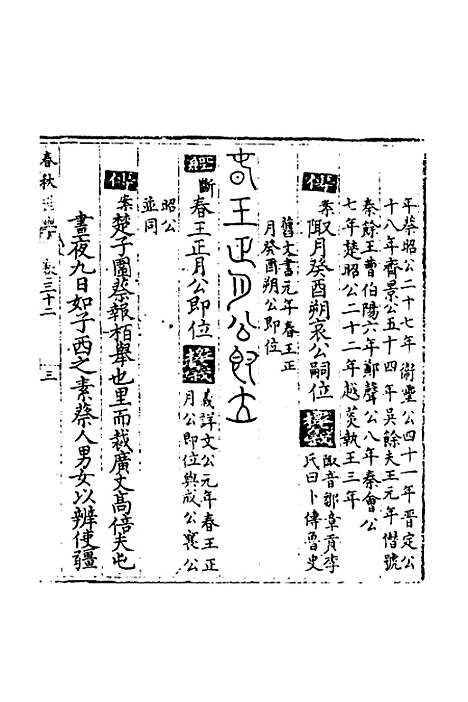 年蔡昭公二十七年衛靈公四十一年晉定公
十八年齊景公五十四年吳餘夫王元年僭號
秦餘王曹伯陽六年鄭聲公八年秦會公
七年楚昭公二十二年越茭執王三年
傳
案陬月癸酉朔哀公嗣位
陬音鄒章貢李
氏曰卜傳魯史
舊文書元年春王正
月癸酉朔公即位
春王正月公即位
經斷
春王正月公即位
義詳文公元年春王正
月公即位與成公襄公
昭公
並同
傳
案楚子圍蔡報栢舉也里而栽廣丈高倍夫屯
晝夜九日如子西之素蔡人男女以辨使疆
春秋 卷三十二 三